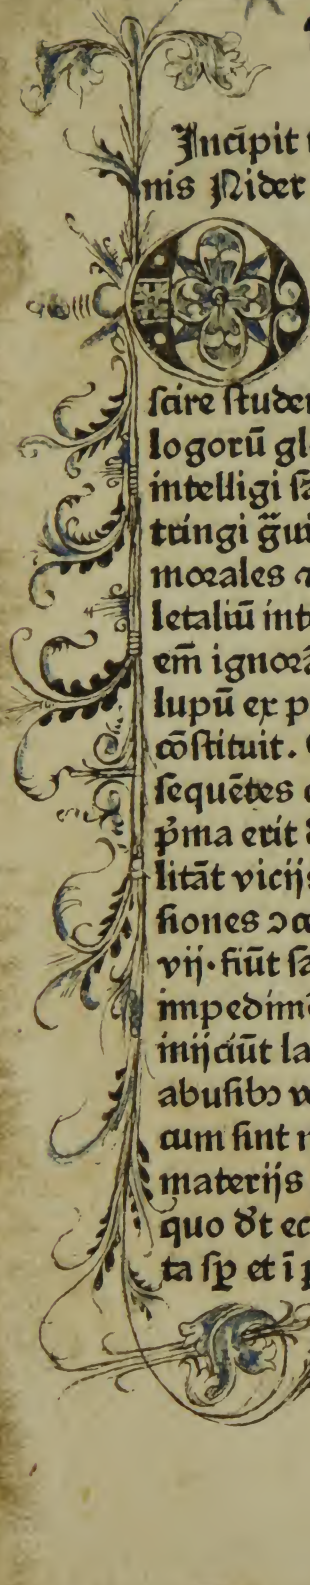 Incipit
nis Nider
scire studen
logorū gl
intelligi
tringi
morales
letaliū int
em̄ ignorā
lupū ex p
cōstituit.
sequētes
p̄ma erit
litāt vicijs
siones
vij. fiūt
impedimē
inijciūt la
abusibꝰ
cum sint
materijs
quo dt̄ ec
ta sꝑ et ī